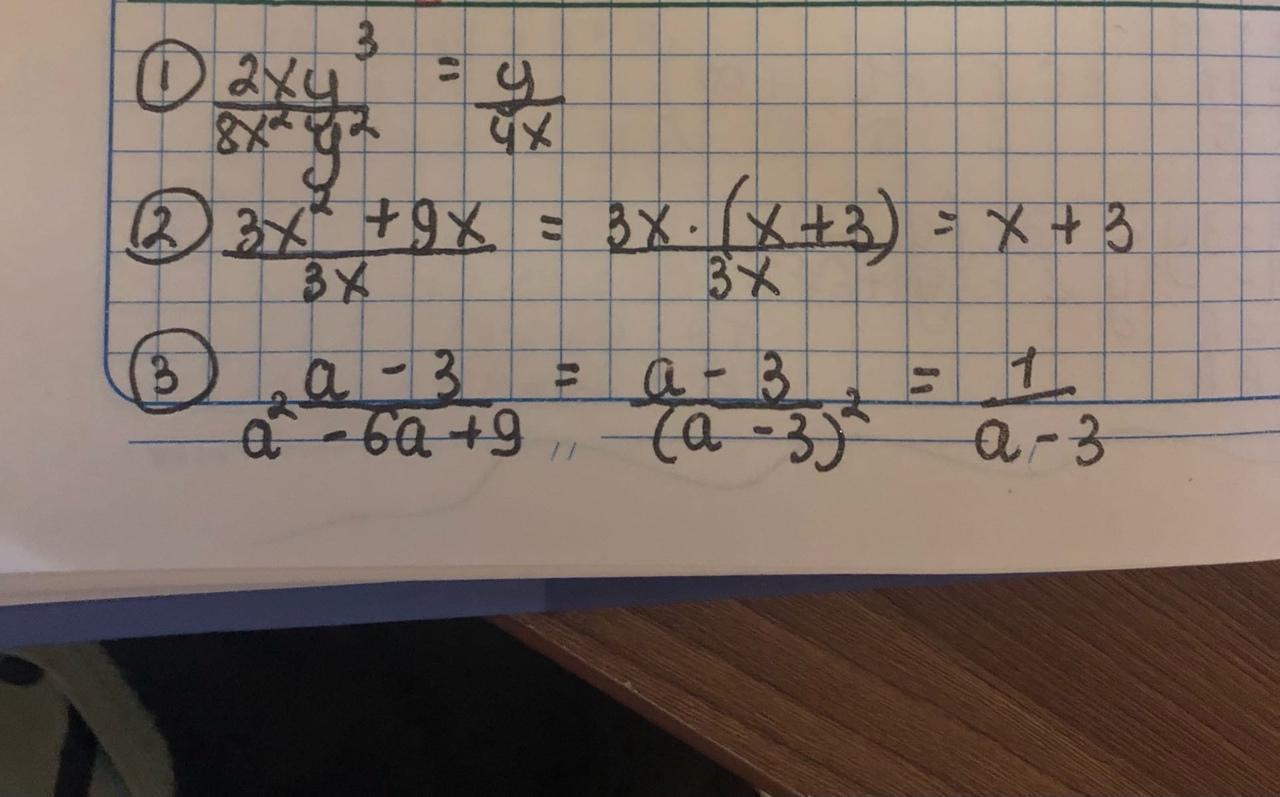 ① 2xy³/8x²y² = y/4x
② 3x² + 9x/3x = 3x·(x+3)/3x = x + 3
③ a - 3/a² - 6a + 9 = a - 3/(a - 3)² = 1/a - 3